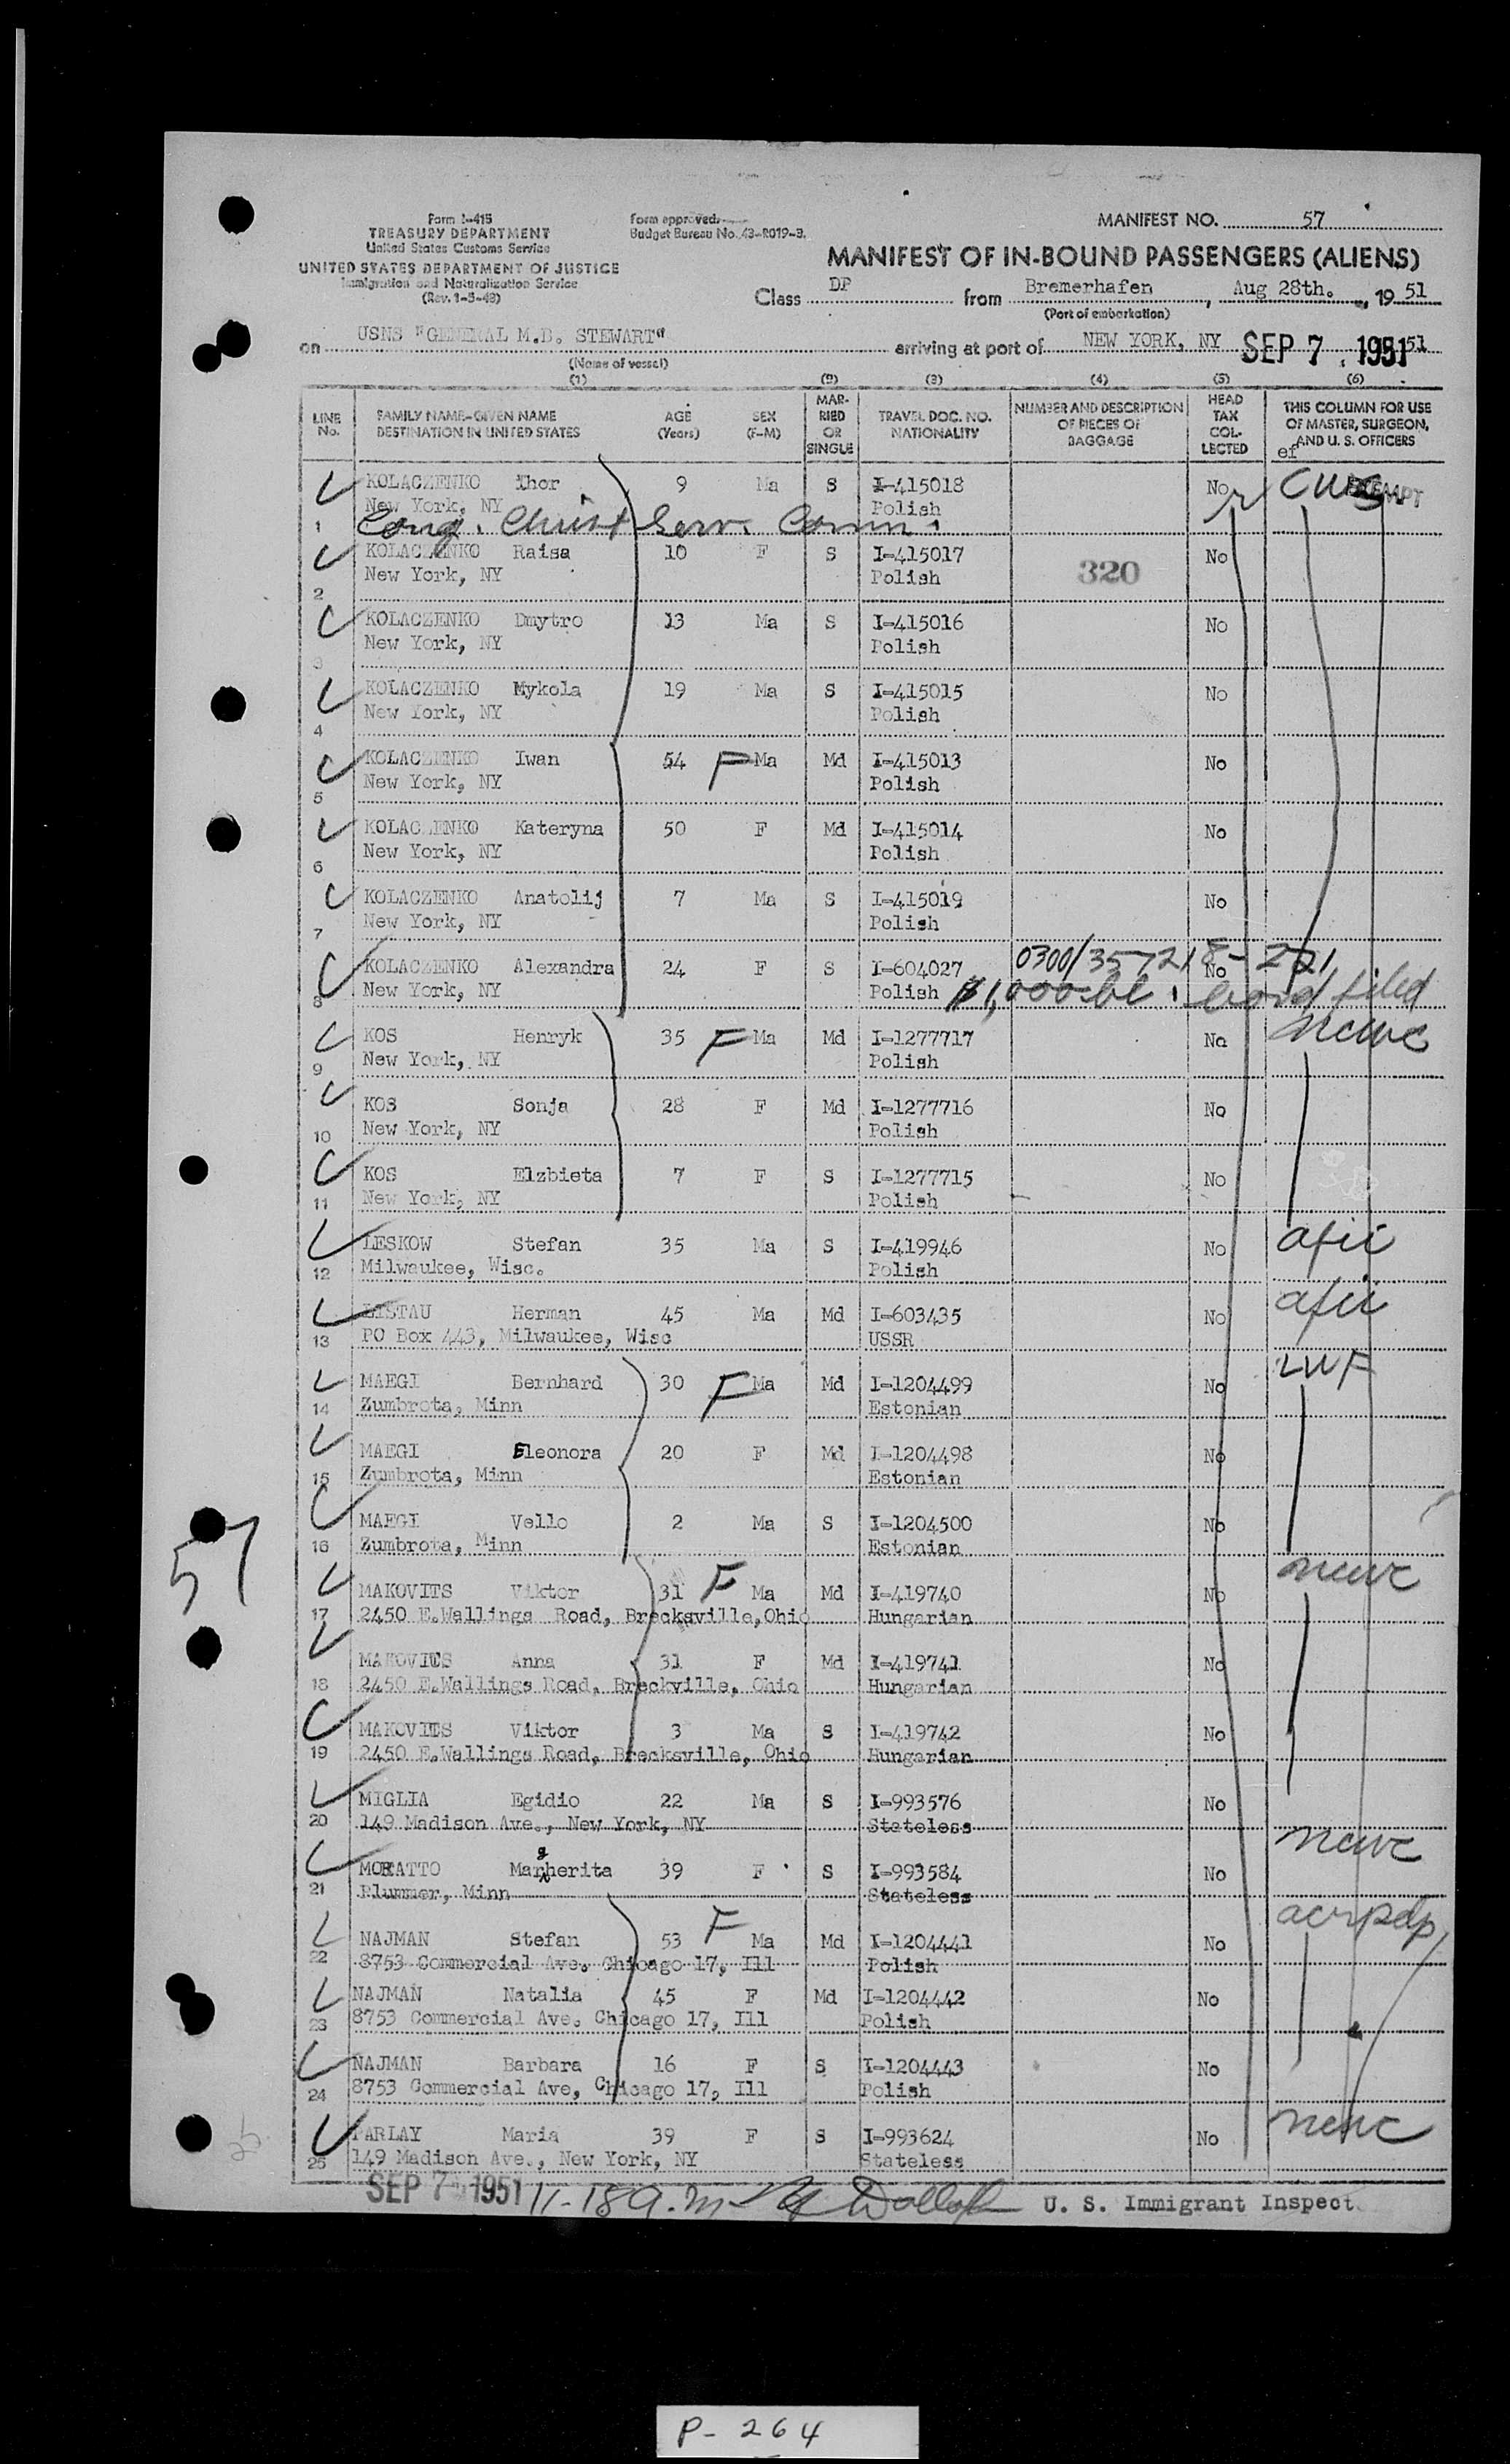 Form I-415
TREASURY DEPARTMENT
United States Customs Service
UNITED STATES DEPARTMENT OF JUSTICE
Immigration and Naturalization Service
(Rev. 1-5-48)
Form approved.
Budget Bureau No. 43-R019-3.
MANIFEST NO. 57
MANIFEST OF IN-BOUND PASSENGERS (ALIENS)
Class DP from Bremerhafen, Aug 28th., 1951
(Port of embarkation)
on USNS "GENERAL M.B. STEWART" arriving at port of NEW YORK, NY SEP 7 1951, 51
(Name of vessel)
(1) (2) (3) (4) (5) (6)
LINE No. FAMILY NAME-GIVEN NAME DESTINATION IN UNITED STATES AGE (Years) SEX (F-M) MARRIED OR SINGLE TRAVEL DOC. NO. NATIONALITY NUMBER AND DESCRIPTION OF PIECES OF BAGGAGE HEAD TAX COLLECTED THIS COLUMN FOR USE OF MASTER, SURGEON, AND U. S. OFFICERS
ef
KOLACZENKO Ihor 9 Ma S I-415018 No CWS EXEMPT
New York, NY Polish
1 Cong. Christ Serv. Comm.
KOLACZENKO Raisa 10 F S I-415017 No
2 New York, NY Polish 320
KOLACZENKO Dmytro 13 Ma S I-415016 No
3 New York, NY Polish
KOLACZENKO Mykola 19 Ma S I-415015 No
4 New York, NY Polish
KOLACZENKO Iwan 54 F Ma Md I-415013 No
5 New York, NY Polish
KOLACZENKO Kateryna 50 F Md I-415014 No
6 New York, NY Polish
KOLACZENKO Anatolij 7 Ma S I-415019 No
7 New York, NY Polish
KOLACZENKO Alexandra 24 F S I-604027 0300/35-7218-221 No
8 New York, NY Polish $1,000 bl. bond filed
KOS Henryk 35 F Ma Md I-1277717 No ncwc
9 New York, NY Polish
KOS Sonja 28 F Md I-1277716 No
10 New York, NY Polish
KOS Elzbieta 7 F S I-1277715 No
11 New York, NY Polish
LESKOW Stefan 35 Ma S I-419946 No afii
12 Milwaukee, Wisc. Polish
LISTAU Herman 45 Ma Md I-603435 No afii
13 PO Box 443, Milwaukee, Wisc USSR
MAEGI Bernhard 30 F Ma Md I-1204499 No LWF
14 Zumbrota, Minn Estonian
MAEGI Eleonora 20 F Md I-1204498 No
15 Zumbrota, Minn Estonian
MAEGI Vello 2 Ma S I-1204500 No
16 Zumbrota, Minn Estonian
MAKOVITS Viktor 31 F Ma Md I-419740 No ncwc
17 2450 E.Wallings Road, Brecksville,Ohio Hungarian
MAKOVITS Anna 31 F Md I-419741 No
18 2450 E.Wallings Road, Breckville, Ohio Hungarian
MAKOVITS Viktor 3 Ma S I-419742 No
19 2450 E.Wallings Road, Brecksville, Ohio Hungarian
MIGLIA Egidio 22 Ma S I-993576 No
20 149 Madison Ave., New York, NY Stateless
MORATTO Margherita 39 F S I-993584 No ncwc
21 Plummer, Minn Stateless
NAJMAN Stefan 53 F Ma Md I-1204441 No acrpdp
22 8753 Commercial Ave. Chicago 17, Ill Polish
NAJMAN Natalia 45 F Md I-1204442 No
23 8753 Commercial Ave. Chicago 17, Ill Polish
NAJMAN Barbara 16 F S I-1204443 No
24 8753 Commercial Ave, Chicago 17, Ill Polish
PARLAY Maria 39 F S I-993624 No ncwc
25 149 Madison Ave., New York, NY Stateless
57
25
SEP 7 1951 11-18 a.m. U. S. Immigrant Inspect.
P-264